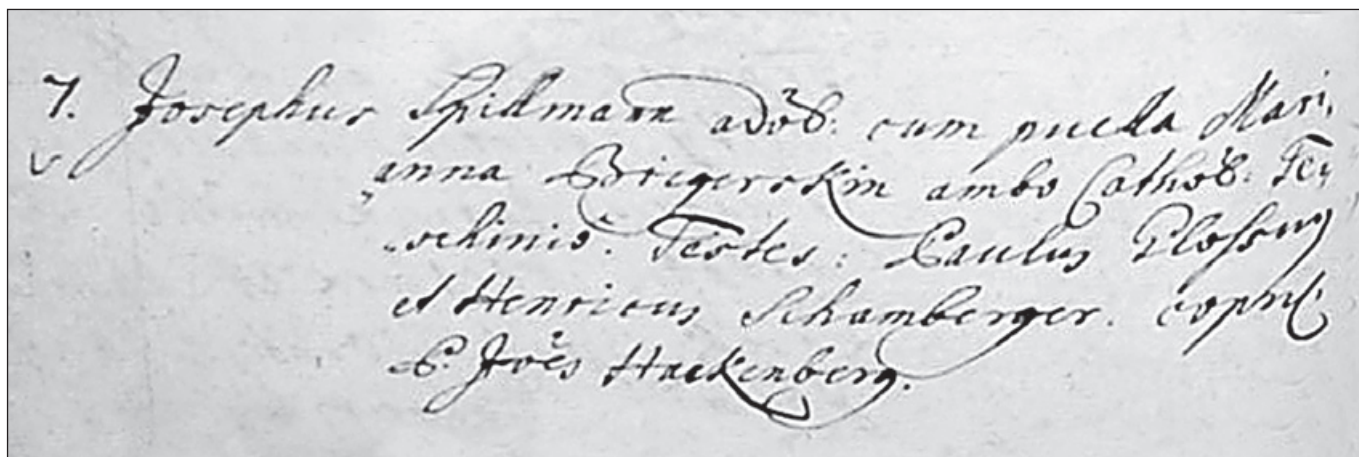 7. Josephus Spillmann adōl: cum puella Mari,
anna Briegerskin ambo Cathōl: Te,
schinio. Testes: Paulus Plossny
et Henricus Schamberger. copul:
P. Joēs Hackenberg.